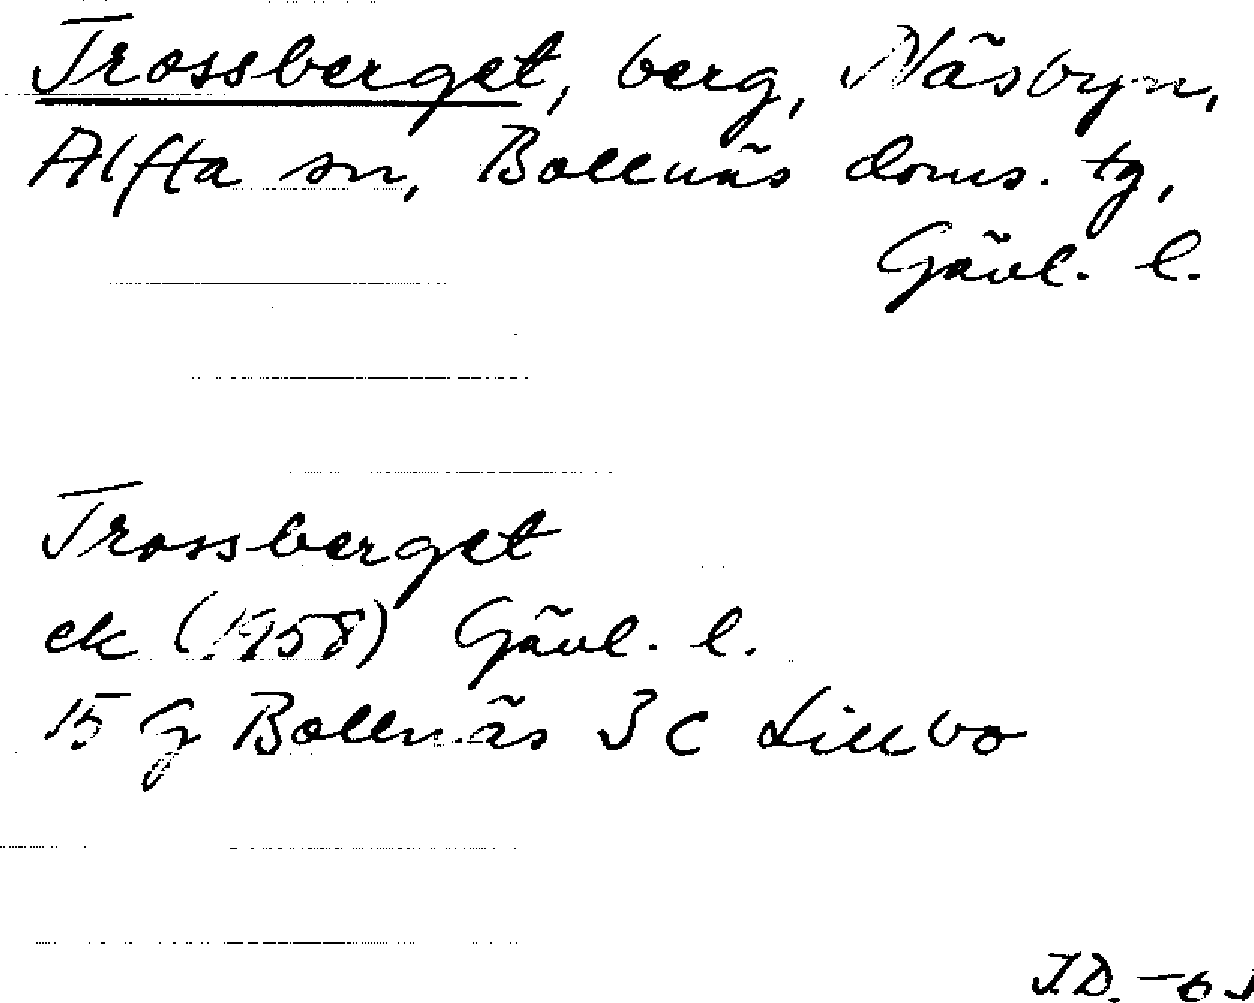 Trossberget, berg, Näsbyn,
Alfta sn, Bollnäs doms. tg,
Gävl. l.
Trossberget
ek (1958) Gävl. l.
15 G Bollnäs 3 c Lillbo